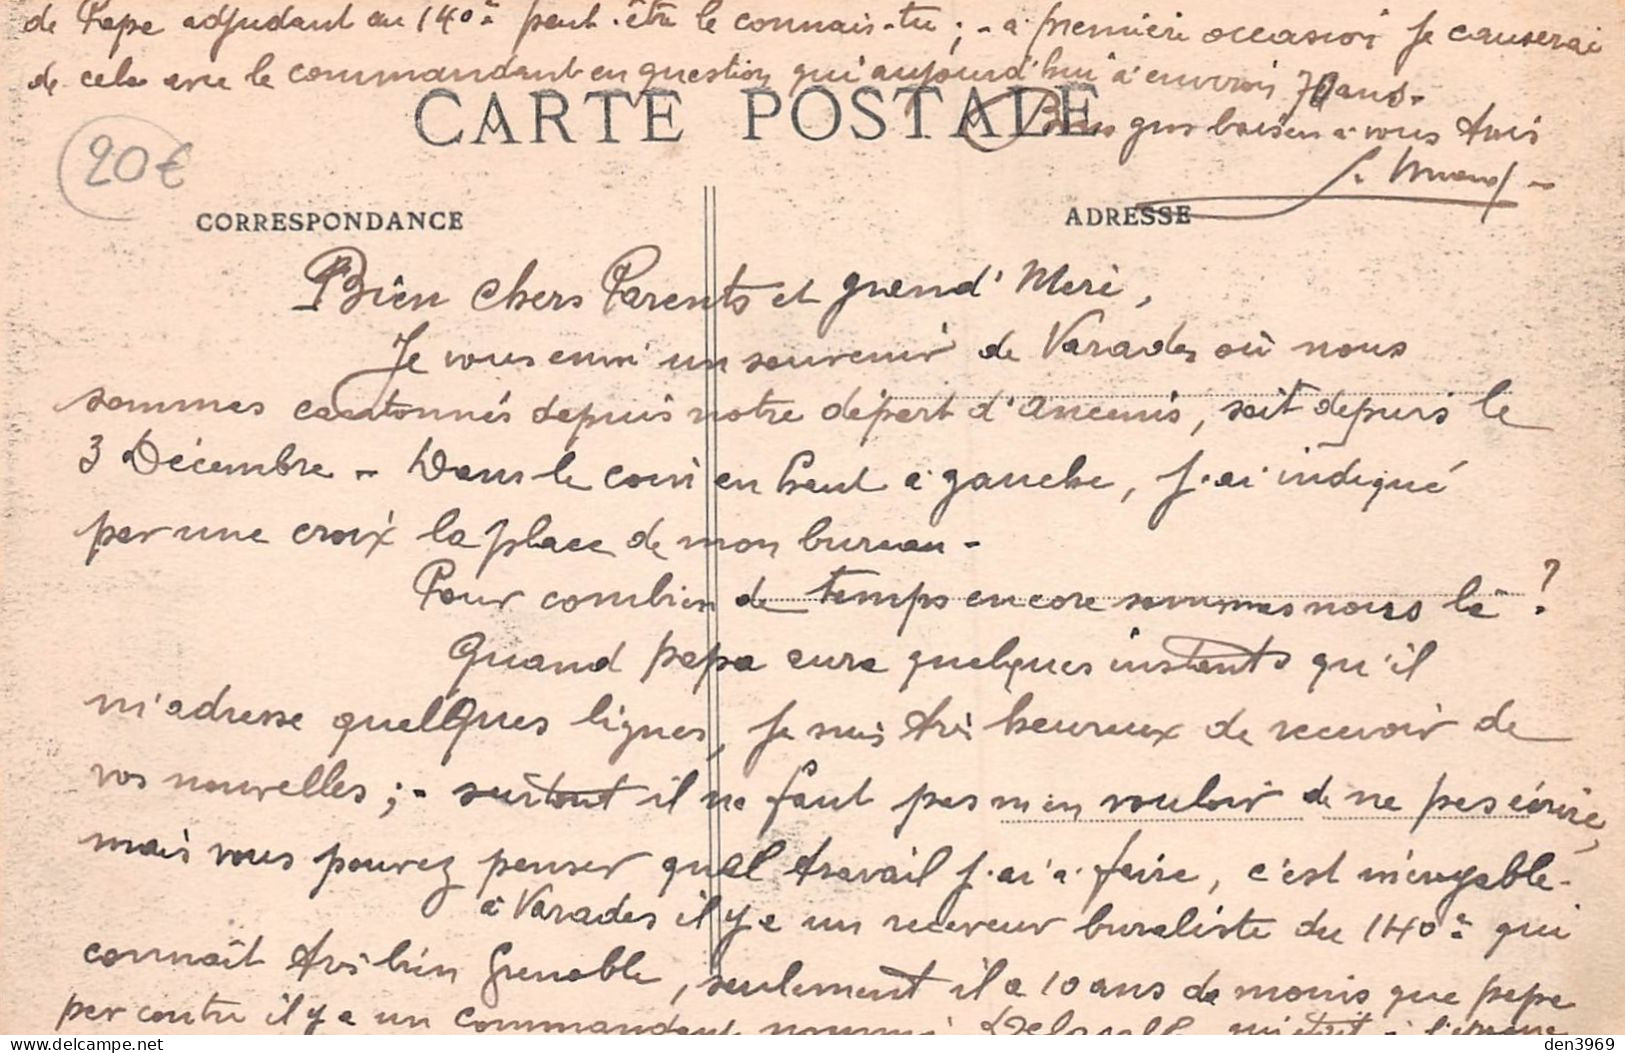 de Papa adjudant au 140è peut-être le connais-tu ; - à première occasion je causerai
de cela avec le commandant en question qui aujourd'hui a environ 70 ans.
CARTE POSTALE
Bons gros baisers à vous trois
20€
CORRESPONDANCE
ADRESSE
Bien chers Parents et grand' Mère,
Je vous envoi un souvenir de Varades où nous
sommes cantonnés depuis notre départ d'Ancenis, soit depuis le
3 Décembre - Dans le coin en haut à gauche, j'ai indiqué
par une croix la place de mon bureau -
Pour combien de temps encore sommes nous là ?
Quand papa aura quelques instants qu'il
m'adresse quelques lignes, je suis très heureux de recevoir de
vos nouvelles ; - surtout il ne faut pas m'en vouloir de ne pas écrire,
mais vous pouvez penser quel travail j'ai à faire, c'est incroyable -
à Varades il y a un receveur buraliste du 140è qui
connaît très bien Grenoble, seulement il a 10 ans de moins que papa
par contre il y a un commandant nommé qui était à l'
delcampe.net
den3969